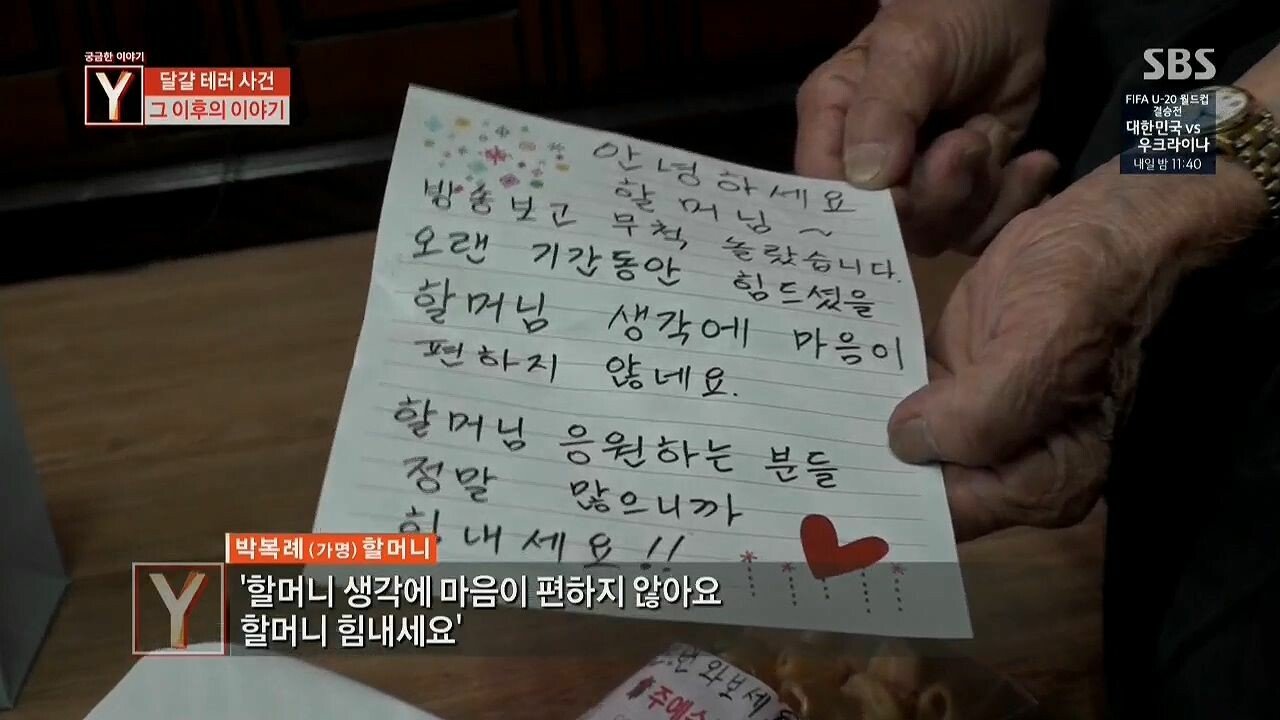 궁금한 이야기
Y
달걀 테러 사건
그 이후의 이야기
SBS
FIFA U-20 월드컵
결승전
대한민국 vs
우크라이나
내일 밤 11:40
안녕하세요
할머님~
방송보고 무척 놀랐습니다.
오랜 기간동안 힘드셨을
할머님 생각에 마음이
편하지 않네요.
할머님 응원하는 분들
정말 많으니까
힘내세요!!
박복례(가명) 할머니
Y
'할머니 생각에 마음이 편하지 않아요
할머니 힘내세요'
와보세
주예수